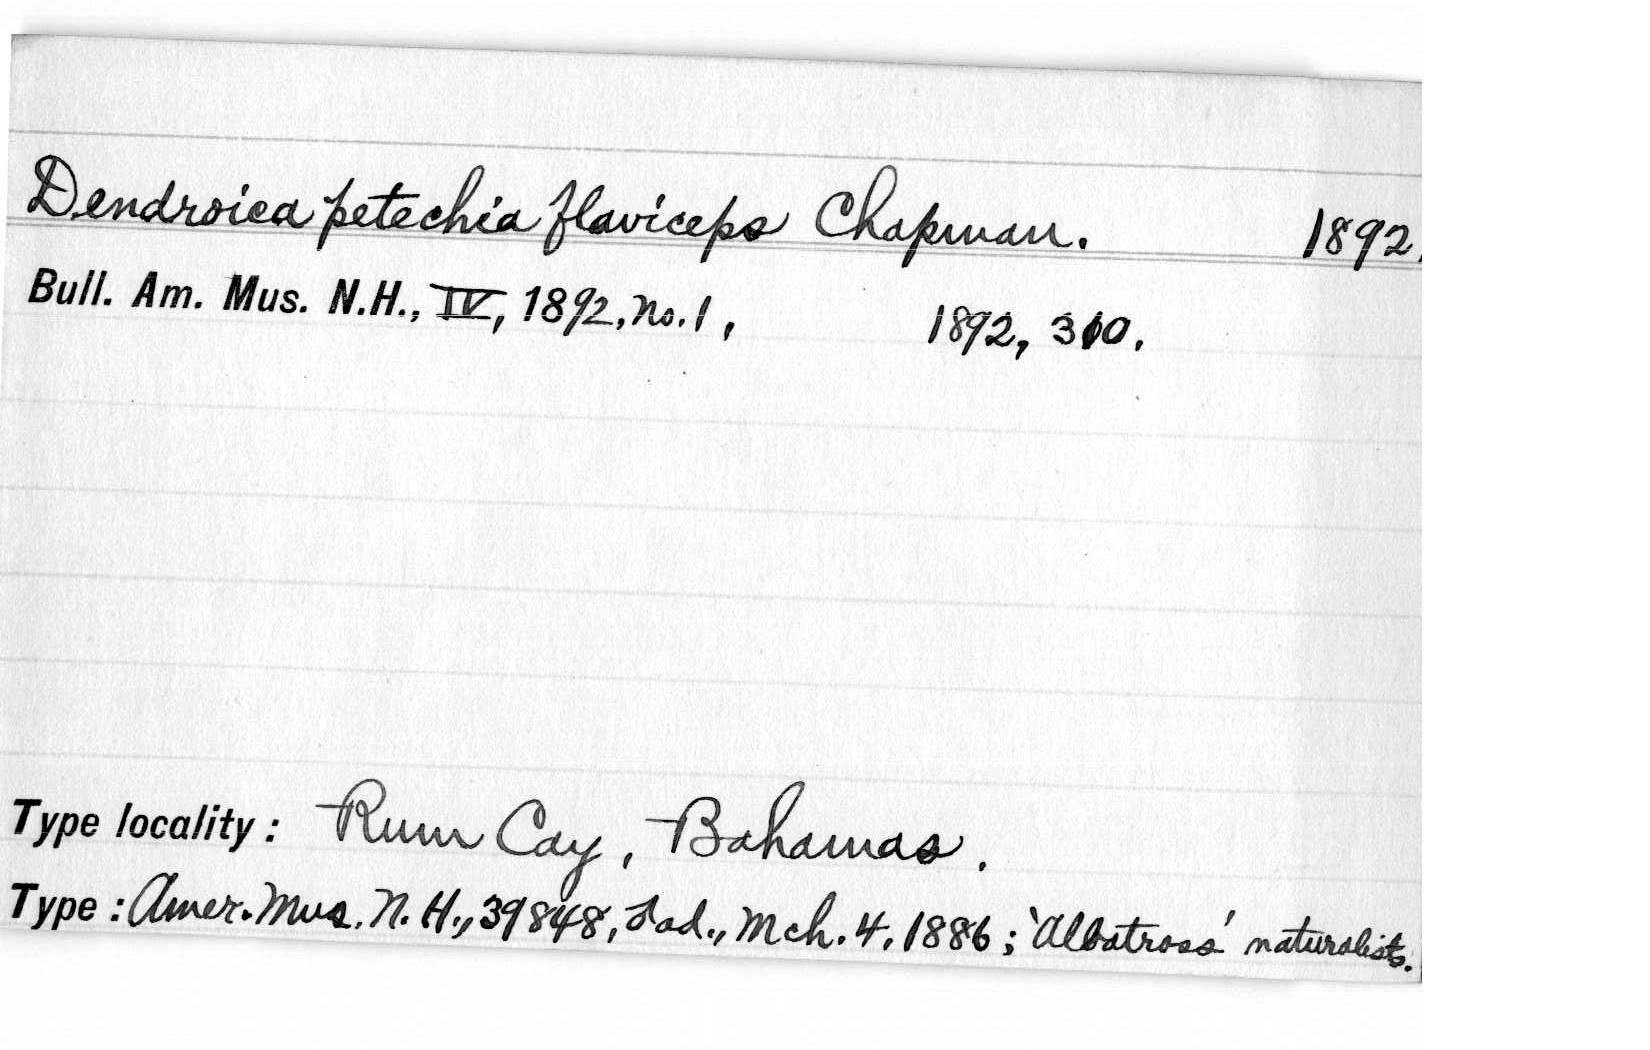 Dendroica petechia flaviceps Chapman. 1892.
Bull. Am. Mus. N.H., IV, 1892, no. 1, 1892, 310.
Type locality: Rum Cay, Bahamas.
Type: Amer. Mus. N. H., 39848, ♂ad., Mch. 4, 1886; 'Albatross' naturalists.